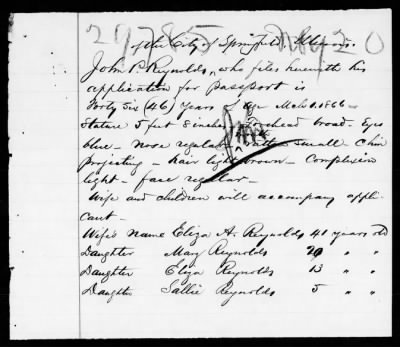 29785
of the City of Springfield, Illinois.
John P. Reynolds, who files herewith his
application for Passport is
Forty Six (46) Years of age March 1. 1866 -
Stature 5 feet 8 inches forehead broad - Eyes
blue - nose regular - rather small Chin
projecting - hair light brown - Complexion
light - face regular -
Wife and children will accompany appli-
cant -
Wife's name Eliza A. Reynolds 41 years old
Daughter Mary Reynolds 20 " "
Daughter Eliza Reynolds 13 " "
Daughter Sallie Reynolds 5 " "